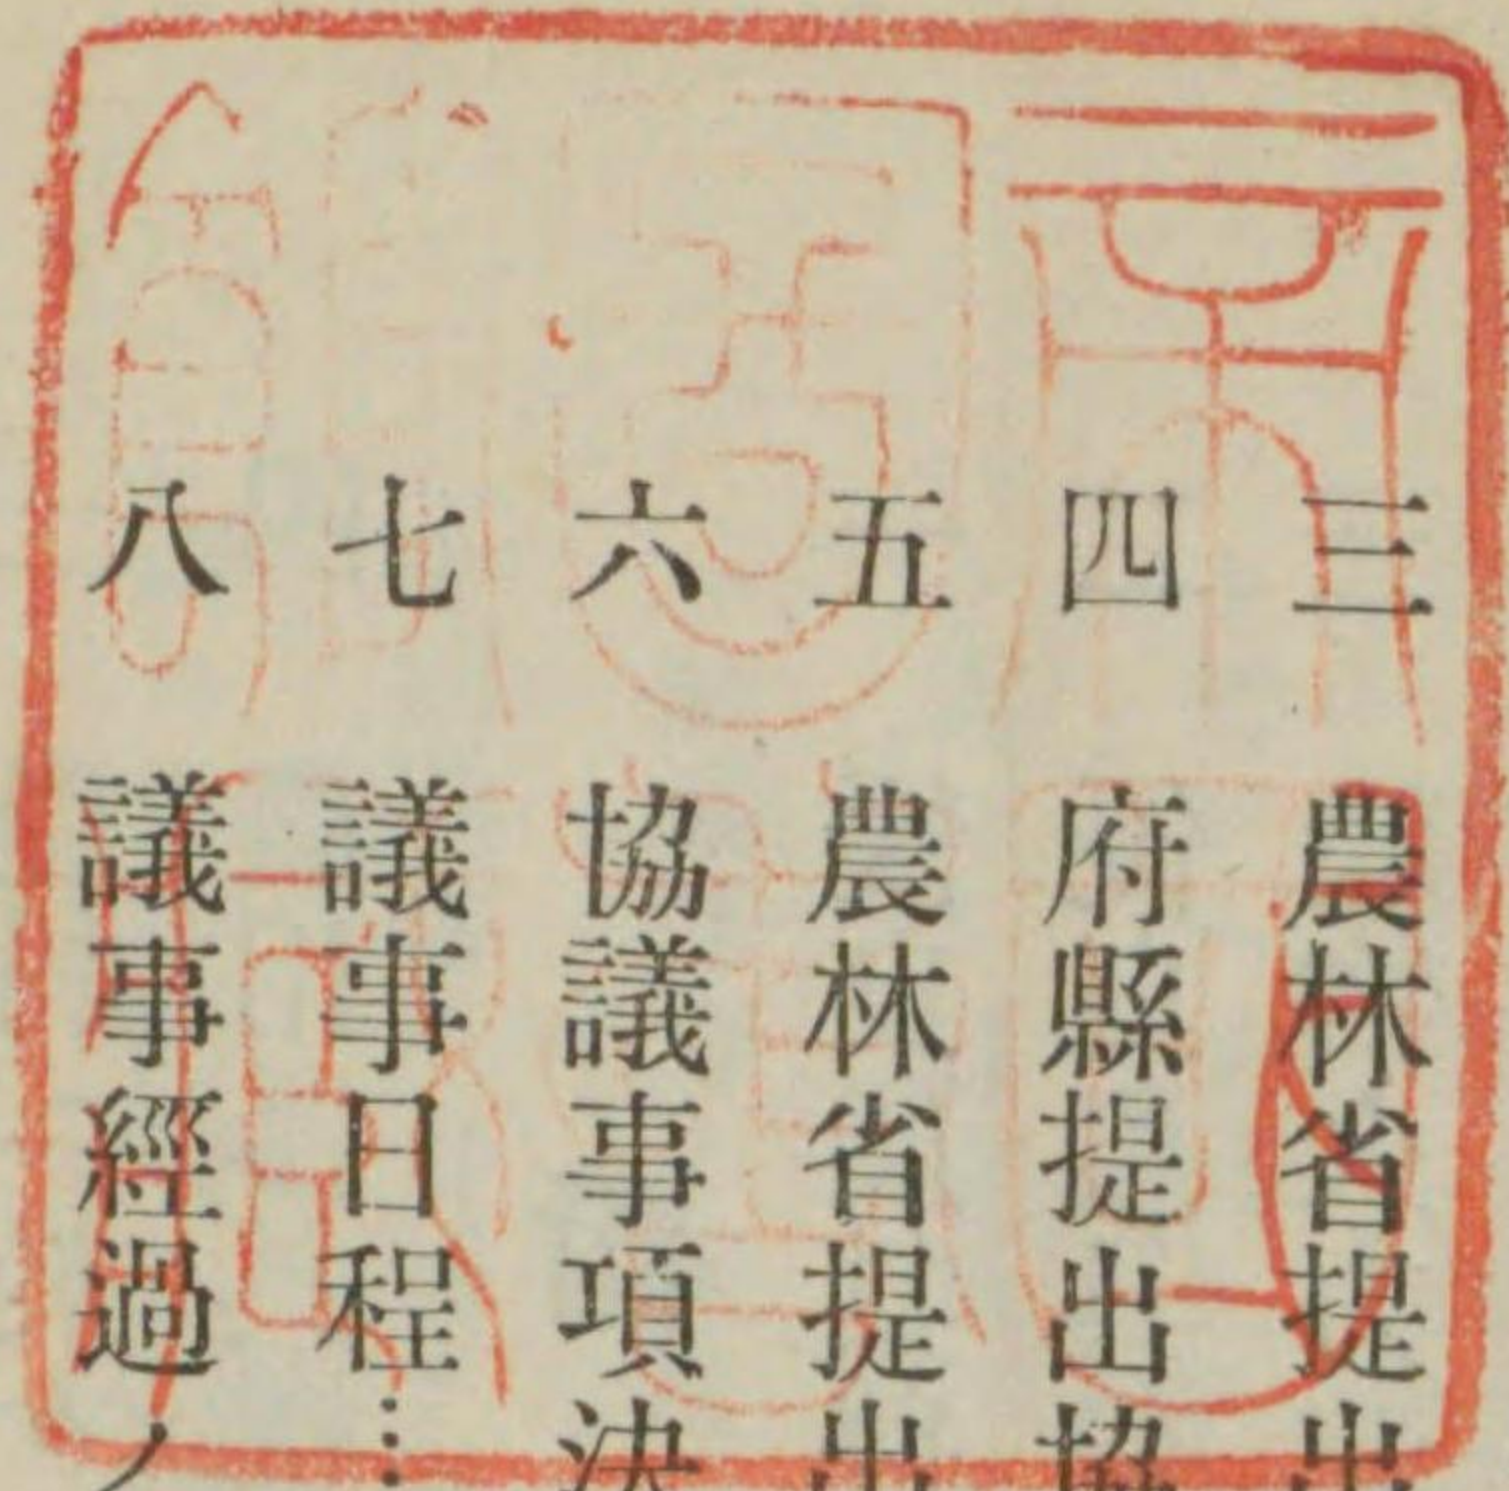 三 農林省提出
四 府縣提出協
五 農林省提出
六 協議事項決
七 議事日程…
八 議事經過ノ